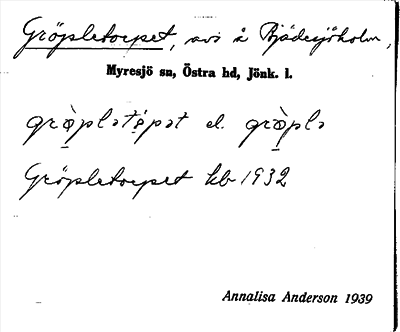 Gröpletorpet, avs å Bjädesjöholm,
Myresjö sn, Östra hd, Jönk. l.
grö̀plətǫpət el. grö̀plə
Gröpletorpet kb 1932
Annalisa Anderson 1939